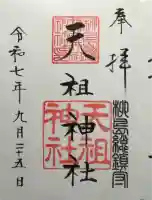 奉拝
天祖神社
天祖
神社
令和七年九月二十五日